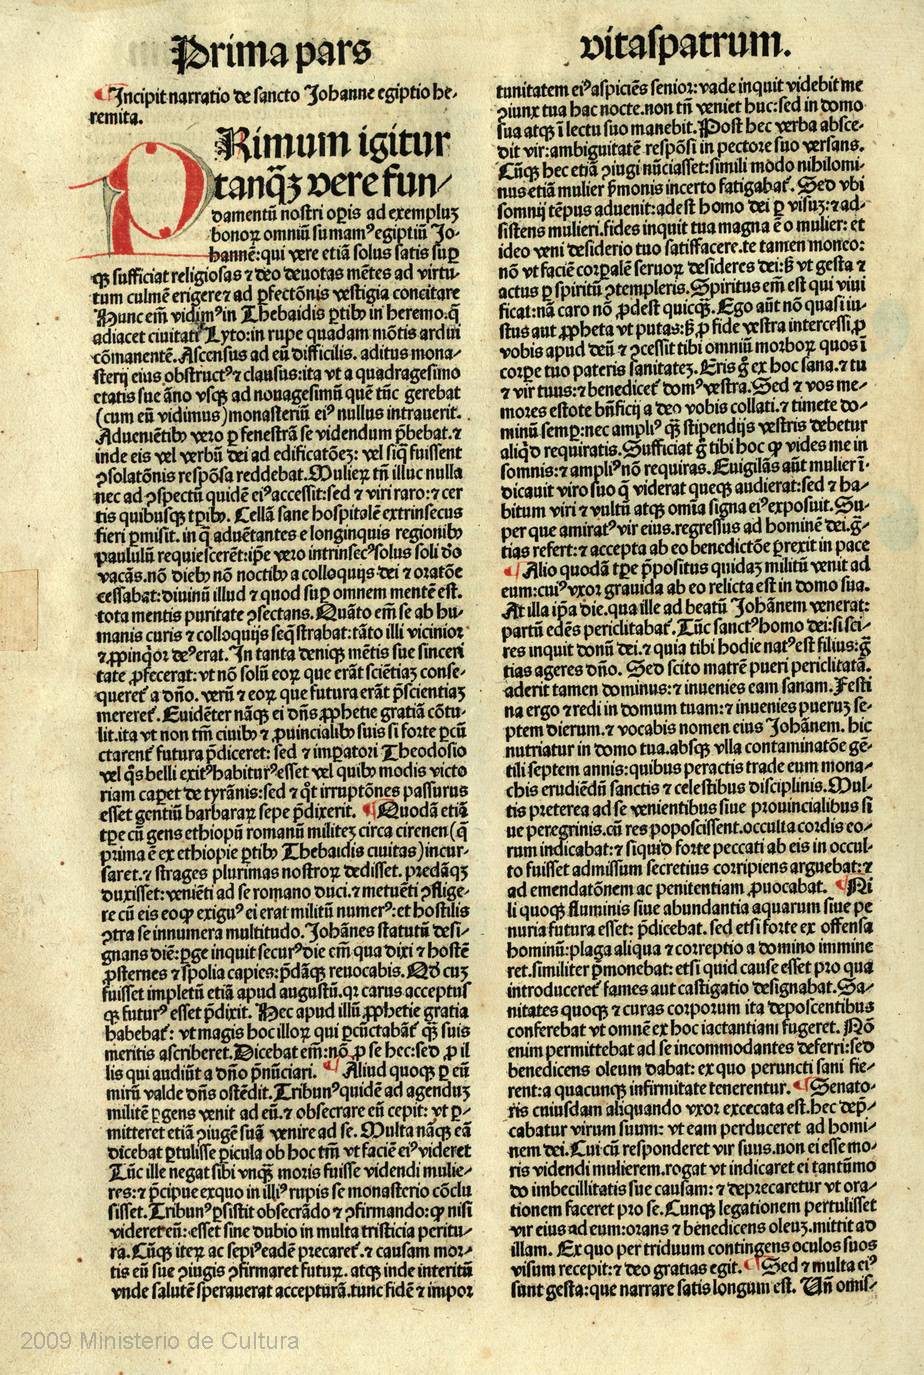 Prima pars
vitaspatrum.
¶ Incipit narratio de sancto Johanne egiptio he⸗
remita.
PRimum igitur
tanq̄ʒ vere fun⸗
damentū nostri oꝑis ad exempluʒ
bonoꝝ omniū sumamꝰ egiptiū Jo⸗
hannē: qui vere etiā solus satis suꝑ
qꝫ sufficiat religiosas ⁊ deo deuotas mētes ad virtu⸗
tum culmē erigere ⁊ ad ꝑfectōnis vestigia concitare
Hunc em̄ vidimꝰ in Thebaidis ꝑtibꝰ in heremo. q̄
adiacet ciuitati Lyto: in rupe quadam mōtis ardui
cōmanentē. Ascensus ad eū difficilis. aditus mona⸗
sterij eius obstructꝰ ⁊ clausus: ita vt a quadragesimo
etatis sue āno vsqꝫ ad nonagesimū quē tūc gerebat
(cum eū vidimus) monasteriū eiꝰ nullus intrauerit.
Adueniētibꝰ vero ꝑ fenestrā se videndum p̄bebat. ⁊
inde eis vel verbū dei ad edificatōeʒ: vel siq̄ fuissent
ꝯsolatōnis respōsa reddebat. Mulieꝝ tn̄ illuc nulla
nec ad ꝯspectū quidē eiꝰ accessit: sed ⁊ viri raro: ⁊ cer
tis quibusqꝫ tꝑibꝰ. Cellā sane hospitalē extrinsecus
fieri ꝑmisit. in qͣ aduētantes e longinquis regionibꝰ
paululū requiescerēt: ip̄e vero intrinsecꝰ solus soli deo
vacās. nō diebꝰ nō noctibꝰ a colloquijs dei ⁊ oratōe
cessabat: diuinū illud ⁊ quod suꝑ omnem mentē est.
tota mentis puritate ꝯsectans. Quāto em̄ se ab hu⸗
manis curis ⁊ colloquijs seq̄strabat: tāto illi vicinior
⁊ ꝓpinqͦor deꝰ erat. In tanta deniqꝫ mētis sue sinceri
tate ꝓfecerat: vt nō solū eoꝝ que erāt sciētiaʒ conse⸗
queret̄ a dn̄o. verū ⁊ eoꝝ que futura erāt p̄scientiaʒ
mereret̄. Euidēter nāqꝫ ei dn̄s ꝓphetie gratiā cōtu⸗
lit. ita vt non tm̄ ciuibꝰ ⁊ ꝓuincialibꝰ suis si forte ꝑcū
ctarent̄ futura p̄diceret: sed ⁊ imꝑatori Theodosio
vel qͦs belli exitꝰ habiturꝰ esset vel quibꝰ modis victo
riam caꝑet de tyrānis: sed ⁊ qͦt irruptōnes passurus
esset gentiū barbaraꝝ sepe p̄dixerit. ¶ Quodā etiā
tꝑe cū gens ethiopū romanū militeʒ circa cirenen (q̄
prima ē ex ethiopie ꝑtibꝰ Thebaidis ciuitas) incur⸗
saret. ⁊ strages plurimas nostroꝝ dedisset. predāqʒ
duxisset: veniēti ad se romano duci. ⁊ metuēti ꝯflige⸗
re cū eis eoqͦ exiguꝰ ei erat militū numerꝰ: et hostilis
ꝯtra se innumera multitudo. Johānes statutū desi⸗
gnans diē: ꝑge inquit securꝰ die em̄ qua dixi ⁊ hostē
ꝓsternes ⁊ spolia capies: p̄dāqʒ reuocabis. Qd̄ cuʒ
fuisset impletū etiā apud augustū. qꝛ carus acceptus
qꝫ futurꝰ esset p̄dixit. Hec apud illū ꝓphetie gratia
habebat̄: vt magis hoc illoꝝ qui ꝑcūctabāt̄ qͣꝫ suis
meritis ascriberet. Dicebat em̄: nō ꝓ se hec: sed ꝓ il
lis qui audiūt a dn̄o p̄nūciari. ¶ Aliud quoqꝫ ꝑ eū
mirū valde dn̄s ostēdit. Tribunꝰ quidē ad agenduʒ
militē ꝑgens venit ad eū. ⁊ obsecrare eū cepit: vt ꝑ⸗
mitteret etiā ꝯiugē suā venire ad se. Multa nāqʒ eā
dicebat ꝑtulisse ꝑicula ob hoc tm̄ vt faciē eiꝰ videret
Tūc ille negat sibi vnqͣꝫ moris fuisse videndi mulie⸗
res: ⁊ p̄cipue exquo in illiꝰ rupis se monasterio cōclu
sisset. Tribunꝰ ꝑsistit obsecrādo ⁊ ꝯfirmando: ꝙ nisi
videret eū: esset sine dubio in multa tristicia peritu⸗
ra. Cūqʒ iteꝝ ac sepiꝰ eadē precaret̄. ⁊ causam mor⸗
tis eū sue ꝯiugis ꝯfirmaret futuꝝ. atqꝫ inde interitū
vnde salutē sperauerat accepturā. tunc fidē ⁊ impor
tunitatem eiꝰ aspiciēs senior: vade inquit videbit me
ꝯiunx tua hac nocte. non tn̄ veniet huc: sed in domo
sua atqʒ ī lectu suo manebit. Post hec verba absce⸗
dit vir: ambiguitatē respōsi in pectore suo versans.
Cūqʒ hec etiā ꝯiugi nūciasset: simili modo nihilomi⸗
nus etiā mulier ꝑmonis incerto fatigabat̄. Sed vbi
somnij tēpus aduenit: adest homo dei ꝑ visuʒ: ⁊ ad⸗
sistens mulieri. fides inquit tua magna ē o mulier: et
ideo veni desiderio tuo satiffacere. te tamen moneo:
nō vt faciē corꝑalē seruoꝝ desideres dei: sʒ vt gesta ⁊
actus ꝑ spiritū ꝯtempleris. Spiritus em̄ est qui viui
ficat: nā caro nō ꝓdest quicqͣꝫ. Ego aūt nō quasi iu⸗
stus aut ꝓpheta vt putas: sʒ ꝓ fide vestra intercessi ꝓ
vobis apud deū ⁊ ꝯcessit tibi omniū morboꝝ quos ī
corꝑe tuo pateris sanitateʒ. Eris ḡ ex hoc sana. ⁊ tu
⁊ vir tuus: ⁊ benedicet̄ domꝰ vestra. Sed ⁊ vos me⸗
mores estote bn̄ficij a deo vobis collati. ⁊ timete do⸗
minū semꝑ: nec ampliꝰ qͣꝫ stipendijs vestris debetur
aliqͥd requiratis. Sufficiat ḡ tibi hoc ꝙ vides me in
somnis: ⁊ ampliꝰ nō requiras. Euigilās aūt mulier ī⸗
dicauit viro suo q̄ viderat queqʒ audierat: sed ⁊ ha⸗
bitum viri ⁊ vultū atqʒ omīa signa eiꝰ exposuit. Su⸗
per que amiratꝰ vir eius. regressus ad hominē dei. gͣ⸗
tias refert: ⁊ accepta ab eo benedictōe ꝑrexit in pace
¶ Alio quodā tꝑe p̄positus quidaʒ militū venit ad
eum: cuiꝰ vxor grauida ab eo relicta est in domo sua.
At illa ip̄a die. qua ille ad beatū Johānem venerat:
partū edēs periclitabat̄. Tūc sanctꝰ homo dei: si sci⸗
res inquit donū dei. ⁊ quia tibi hodie natꝰ est filius: gͣ
tias ageres dn̄o. Sed scito matrē pueri periclitatā.
aderit tamen dominus: ⁊ inuenies eam sanam. Festi
na ergo ⁊ redi in domum tuam: ⁊ inuenies pueruʒ se⸗
ptem dierum. ⁊ vocabis nomen eius Johānem. hic
nutriatur in domo tua. absqʒ vlla contaminatōe gē⸗
tili septem annis: quibus peractis trade eum mona⸗
chis erudiēdū sanctis ⁊ celestibus disciplinis. Mul⸗
tis preterea ad se venientibus siue prouincialibus si
ue peregrinis. cū res poposcissent. occulta cordis eo⸗
rum indicabat: ⁊ siquid forte peccati ab eis in occul⸗
to fuisset admissum secretius corripiens arguebat: ⁊
ad emendatōnem ac penitentiam ꝓuocabat. ¶ Ni
li quoqʒ fluminis siue abundantia aquarum siue pe
nuria futura esset: p̄dicebat. sed etsi forte ex offensa
hominū: plaga aliqua ⁊ correptio a domino immine
ret. similiter p̄monebat: etsi quid cause esset pro qua
introduceret̄ fames aut castigatio designabat. Sa⸗
nitates quoqʒ ⁊ curas corporum ita deposcentibus
conferebat vt omnē ex hoc iactantiam fugeret. Nō
enim permittebat ad se incommodantes deferri: sed
benedicens oleum dabat: ex quo peruncti sani fie⸗
rent: a quacunqʒ infirmitate tenerentur. ¶ Senato⸗
ris cuiusdam aliquando vxor excecata est. hec dep̄⸗
cabatur virum suum: vt eam perduceret ad homi⸗
nem dei. Cui cū responderet vir suus. non ei esse mo⸗
ris videndi mulierem. rogat vt indicaret ei tantūmo
do imbecillitatis sue causam: ⁊ deprecaretur vt ora⸗
tionem faceret pro se. Cunqʒ legationem pertulisset
vir eius ad eum: orans ⁊ benedicens oleuʒ. mittit ad
illam. Ex quo per triduum contingens oculos suos
visum recepit: ⁊ deo gratias egit. ¶ Sed ⁊ multa eiꝰ
sunt gesta: que narrare satis longum est. Vn̄ omis⸗
2009 Ministerio de Cultura